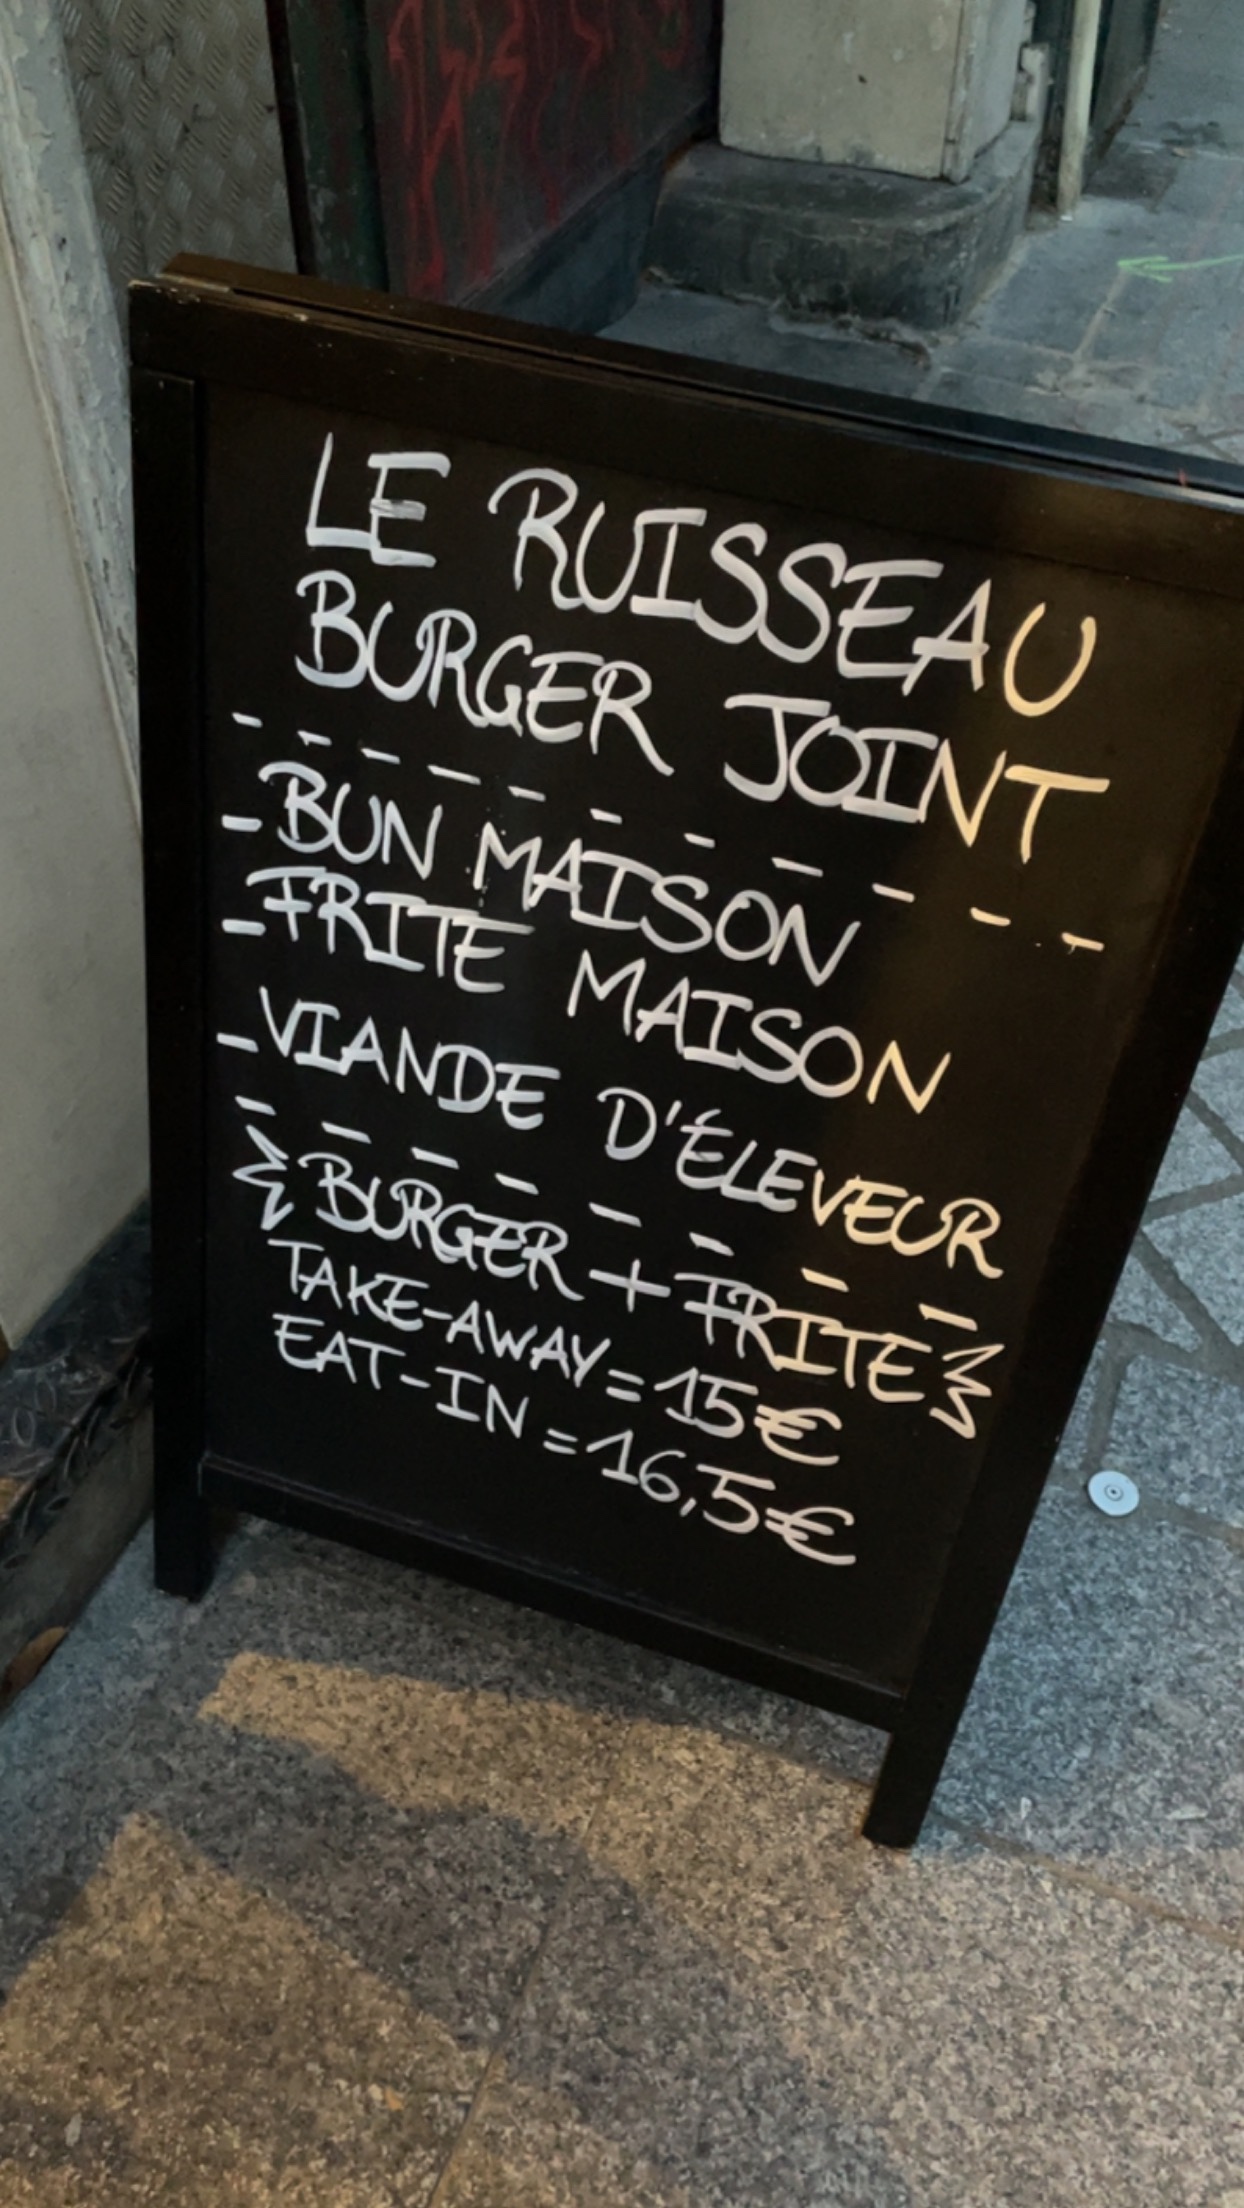 LE RUISSEAU
BURGER JOINT
- BUN MAISON
- FRITE MAISON
- VIANDE D'ÉLEVEUR
BURGER + FRITE
TAKE-AWAY = 15€
EAT-IN = 16,5€